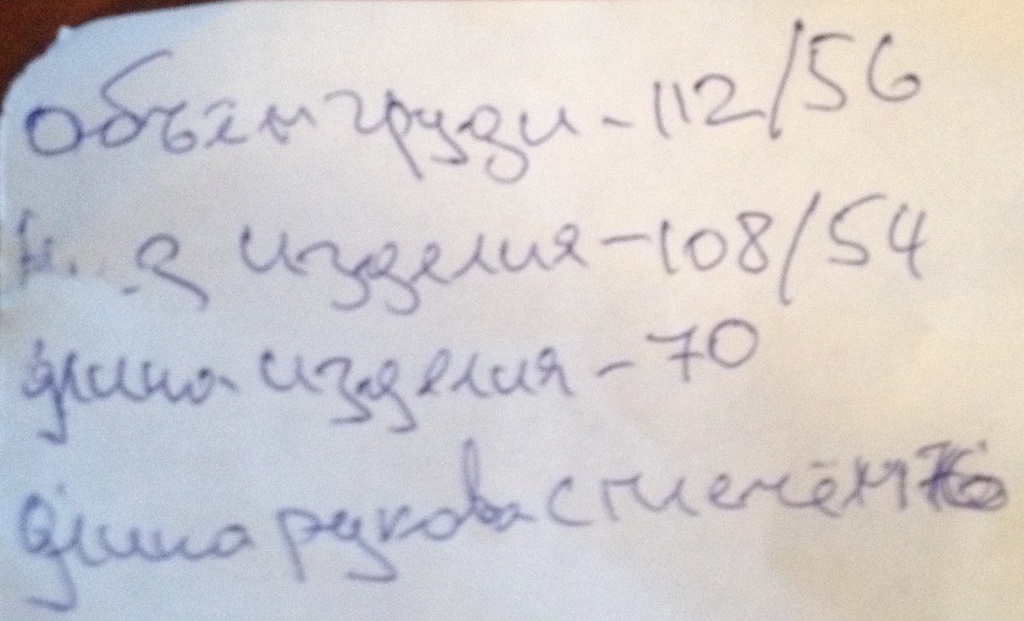 Объём груди - 112/56
изделия - 108/54
длина изделия - 70
длина рукова с плечём